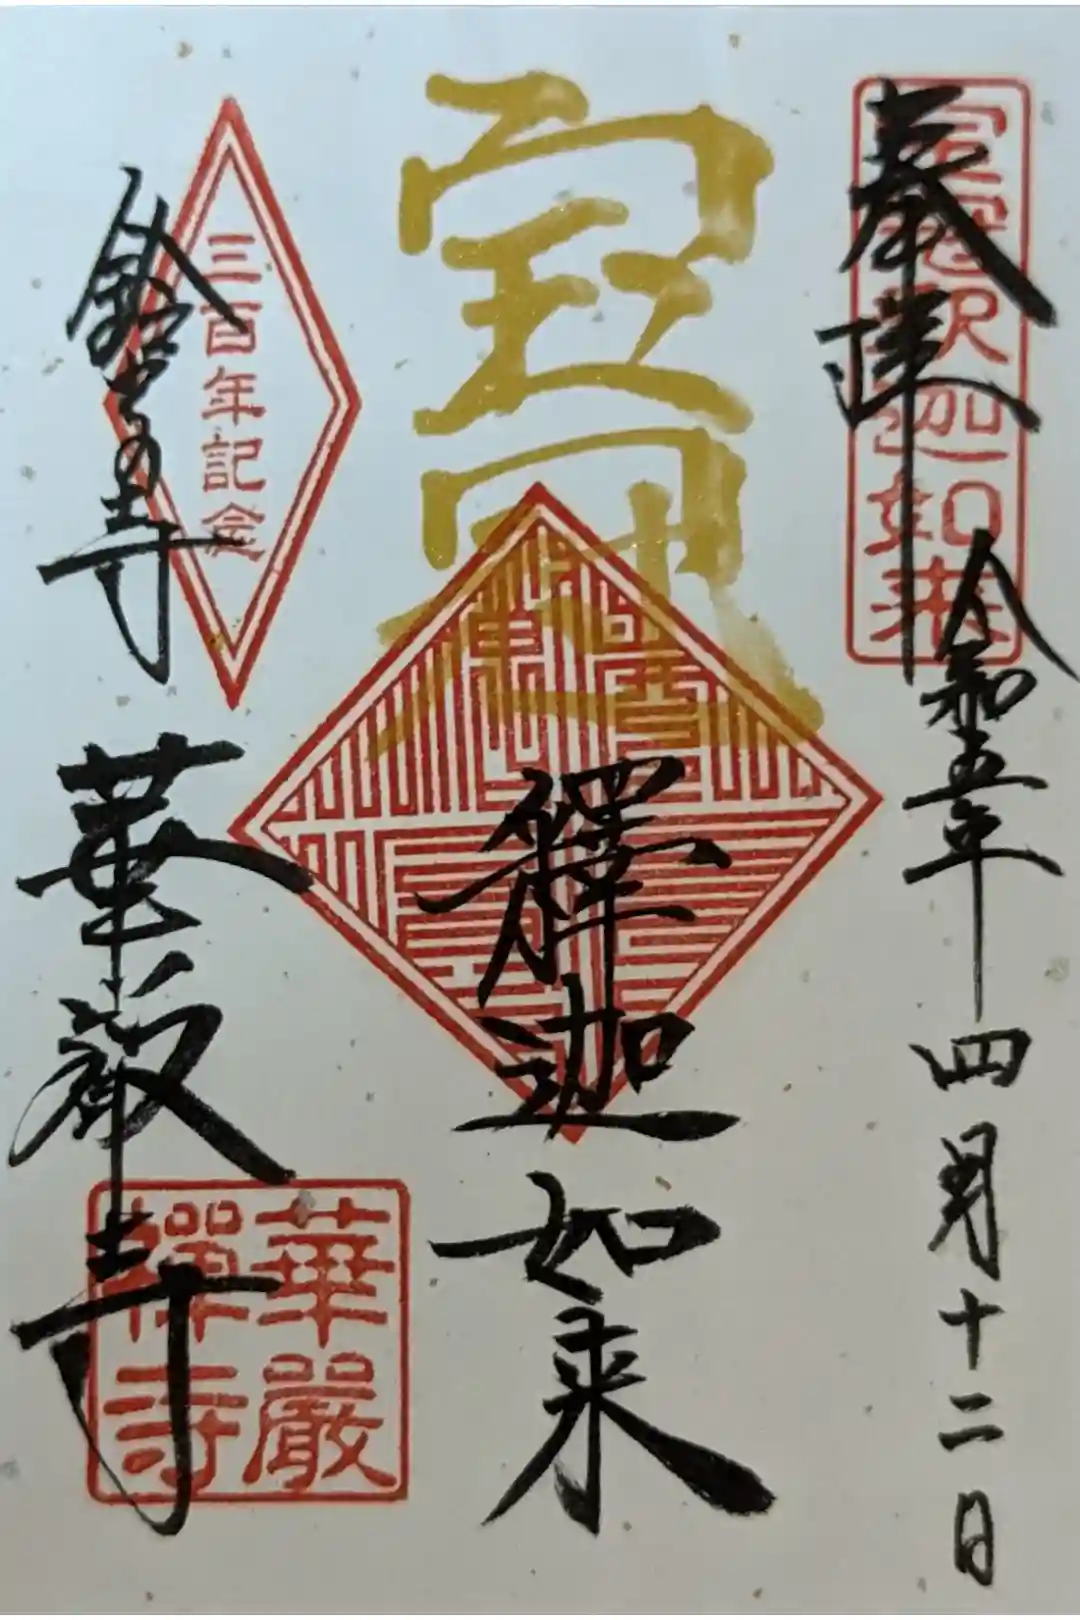 奉拝
宝冠釈迦如来
令和五年四月十二日
宝冠
釋迦如来
三百年記念
鈴虫の寺
華厳寺
華嚴
禪寺